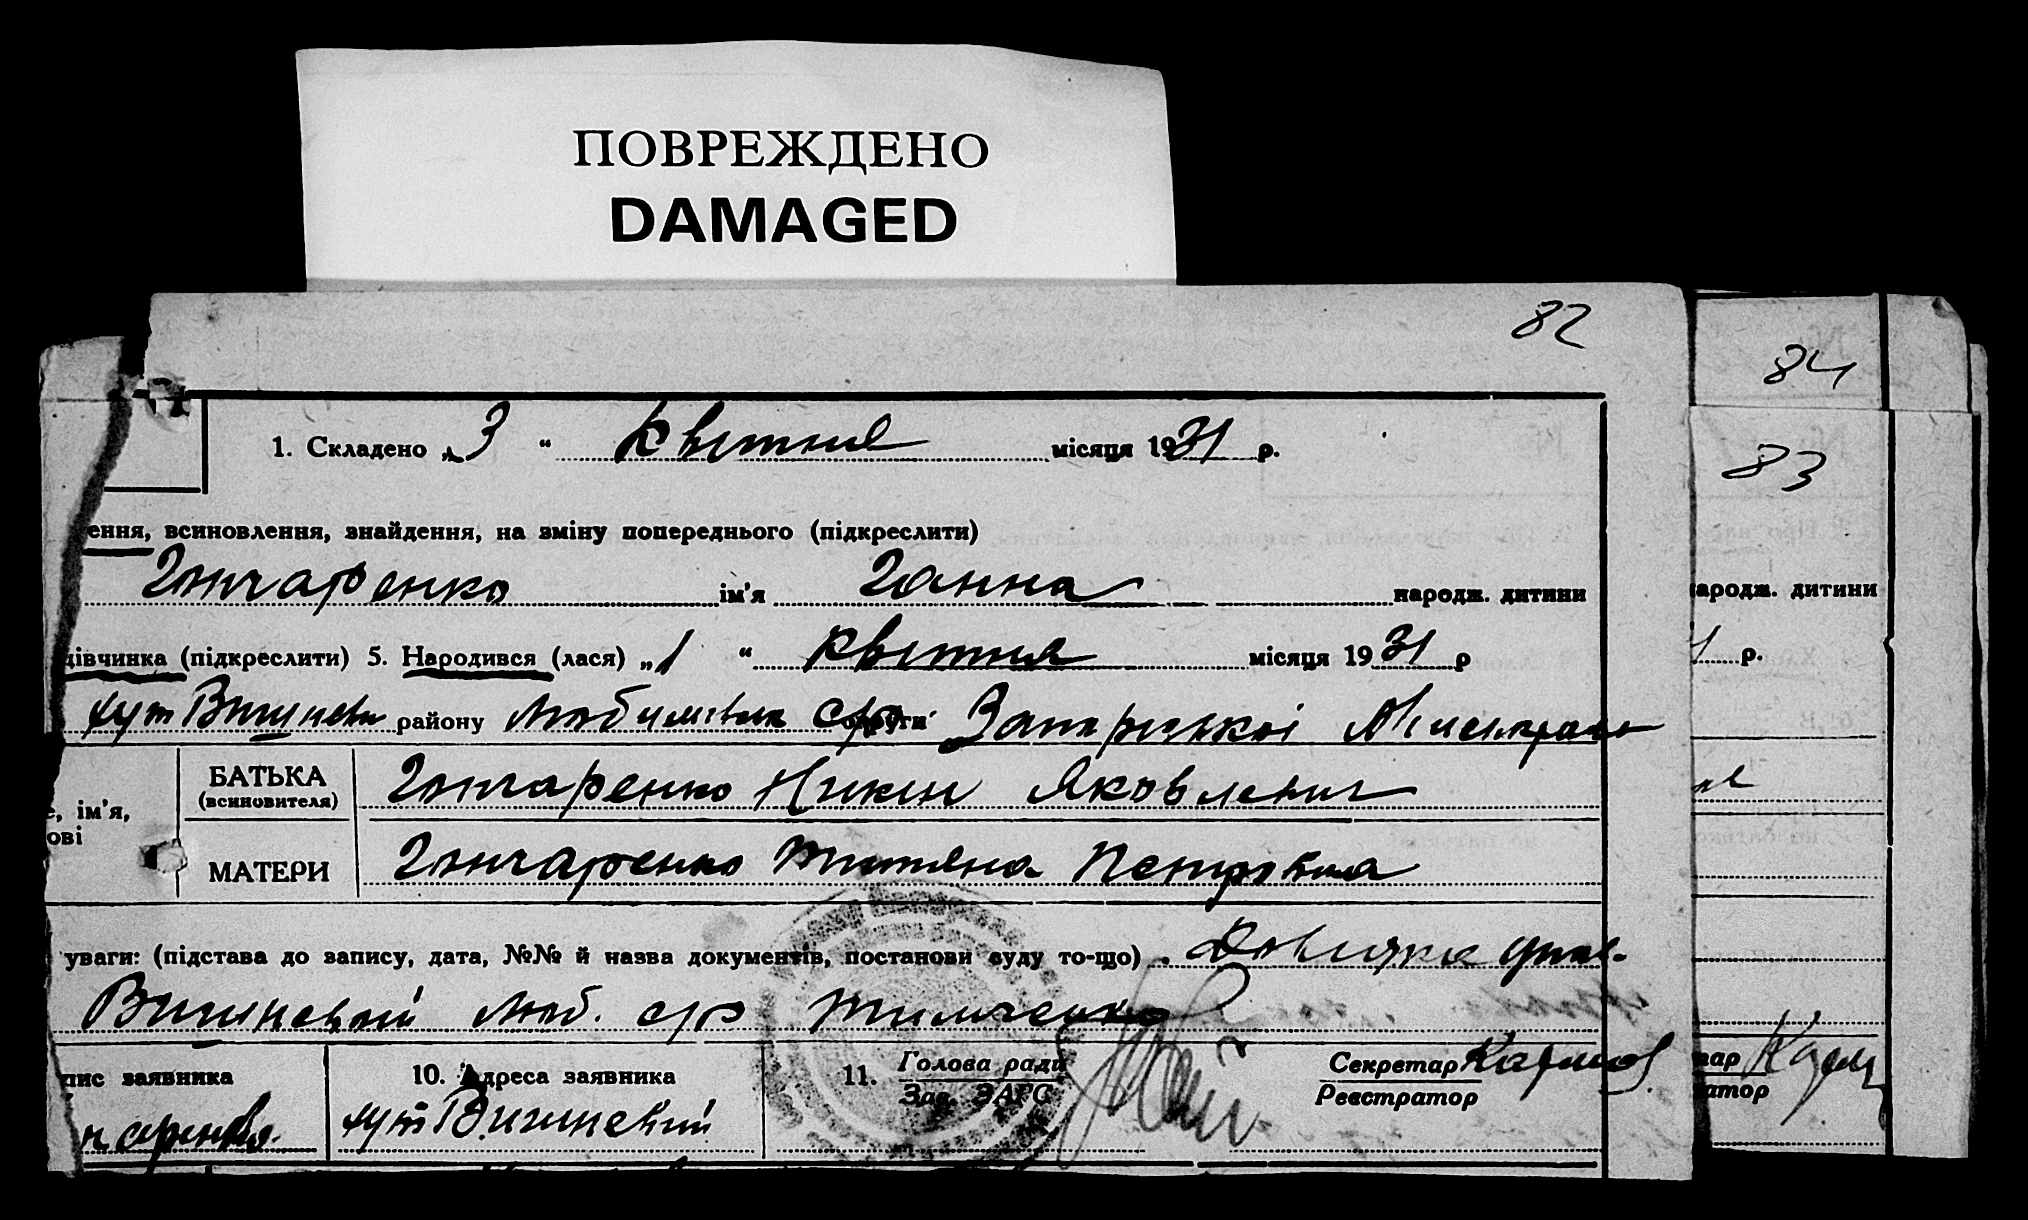 ПОВРЕЖДЕНО
DAMAGED
82
84
83
1. Складено „ 3 “ квітня місяця 1931 р.
ення, всиновлення, знайдення, на зміну попереднього (підкреслити)
Гончаренко ім'я Ганна народж. дитини
дівчинка (підкреслити) 5. Народився (лася) „ 1 “ квітня місяця 1931 р
хут Вишневий району Любимівськ с/р округи Запорізької
БАТЬКА
(всиновителя)
Гончаренко Яковлевич
, ім'я,
ові
МАТЕРИ
Гончаренко Петровна
уваги: (підстава до запису, дата, №№ й назва документів, постанови суду то-що) . Довідка
Вишневый Люб. с/р Тимченко
пис заявника
10. Адреса заявника
хут Вишневый
11. Голова ради
Зав. ЗАГС
Секретар
Реєстратор
народж. дитини
р.
тар
атор